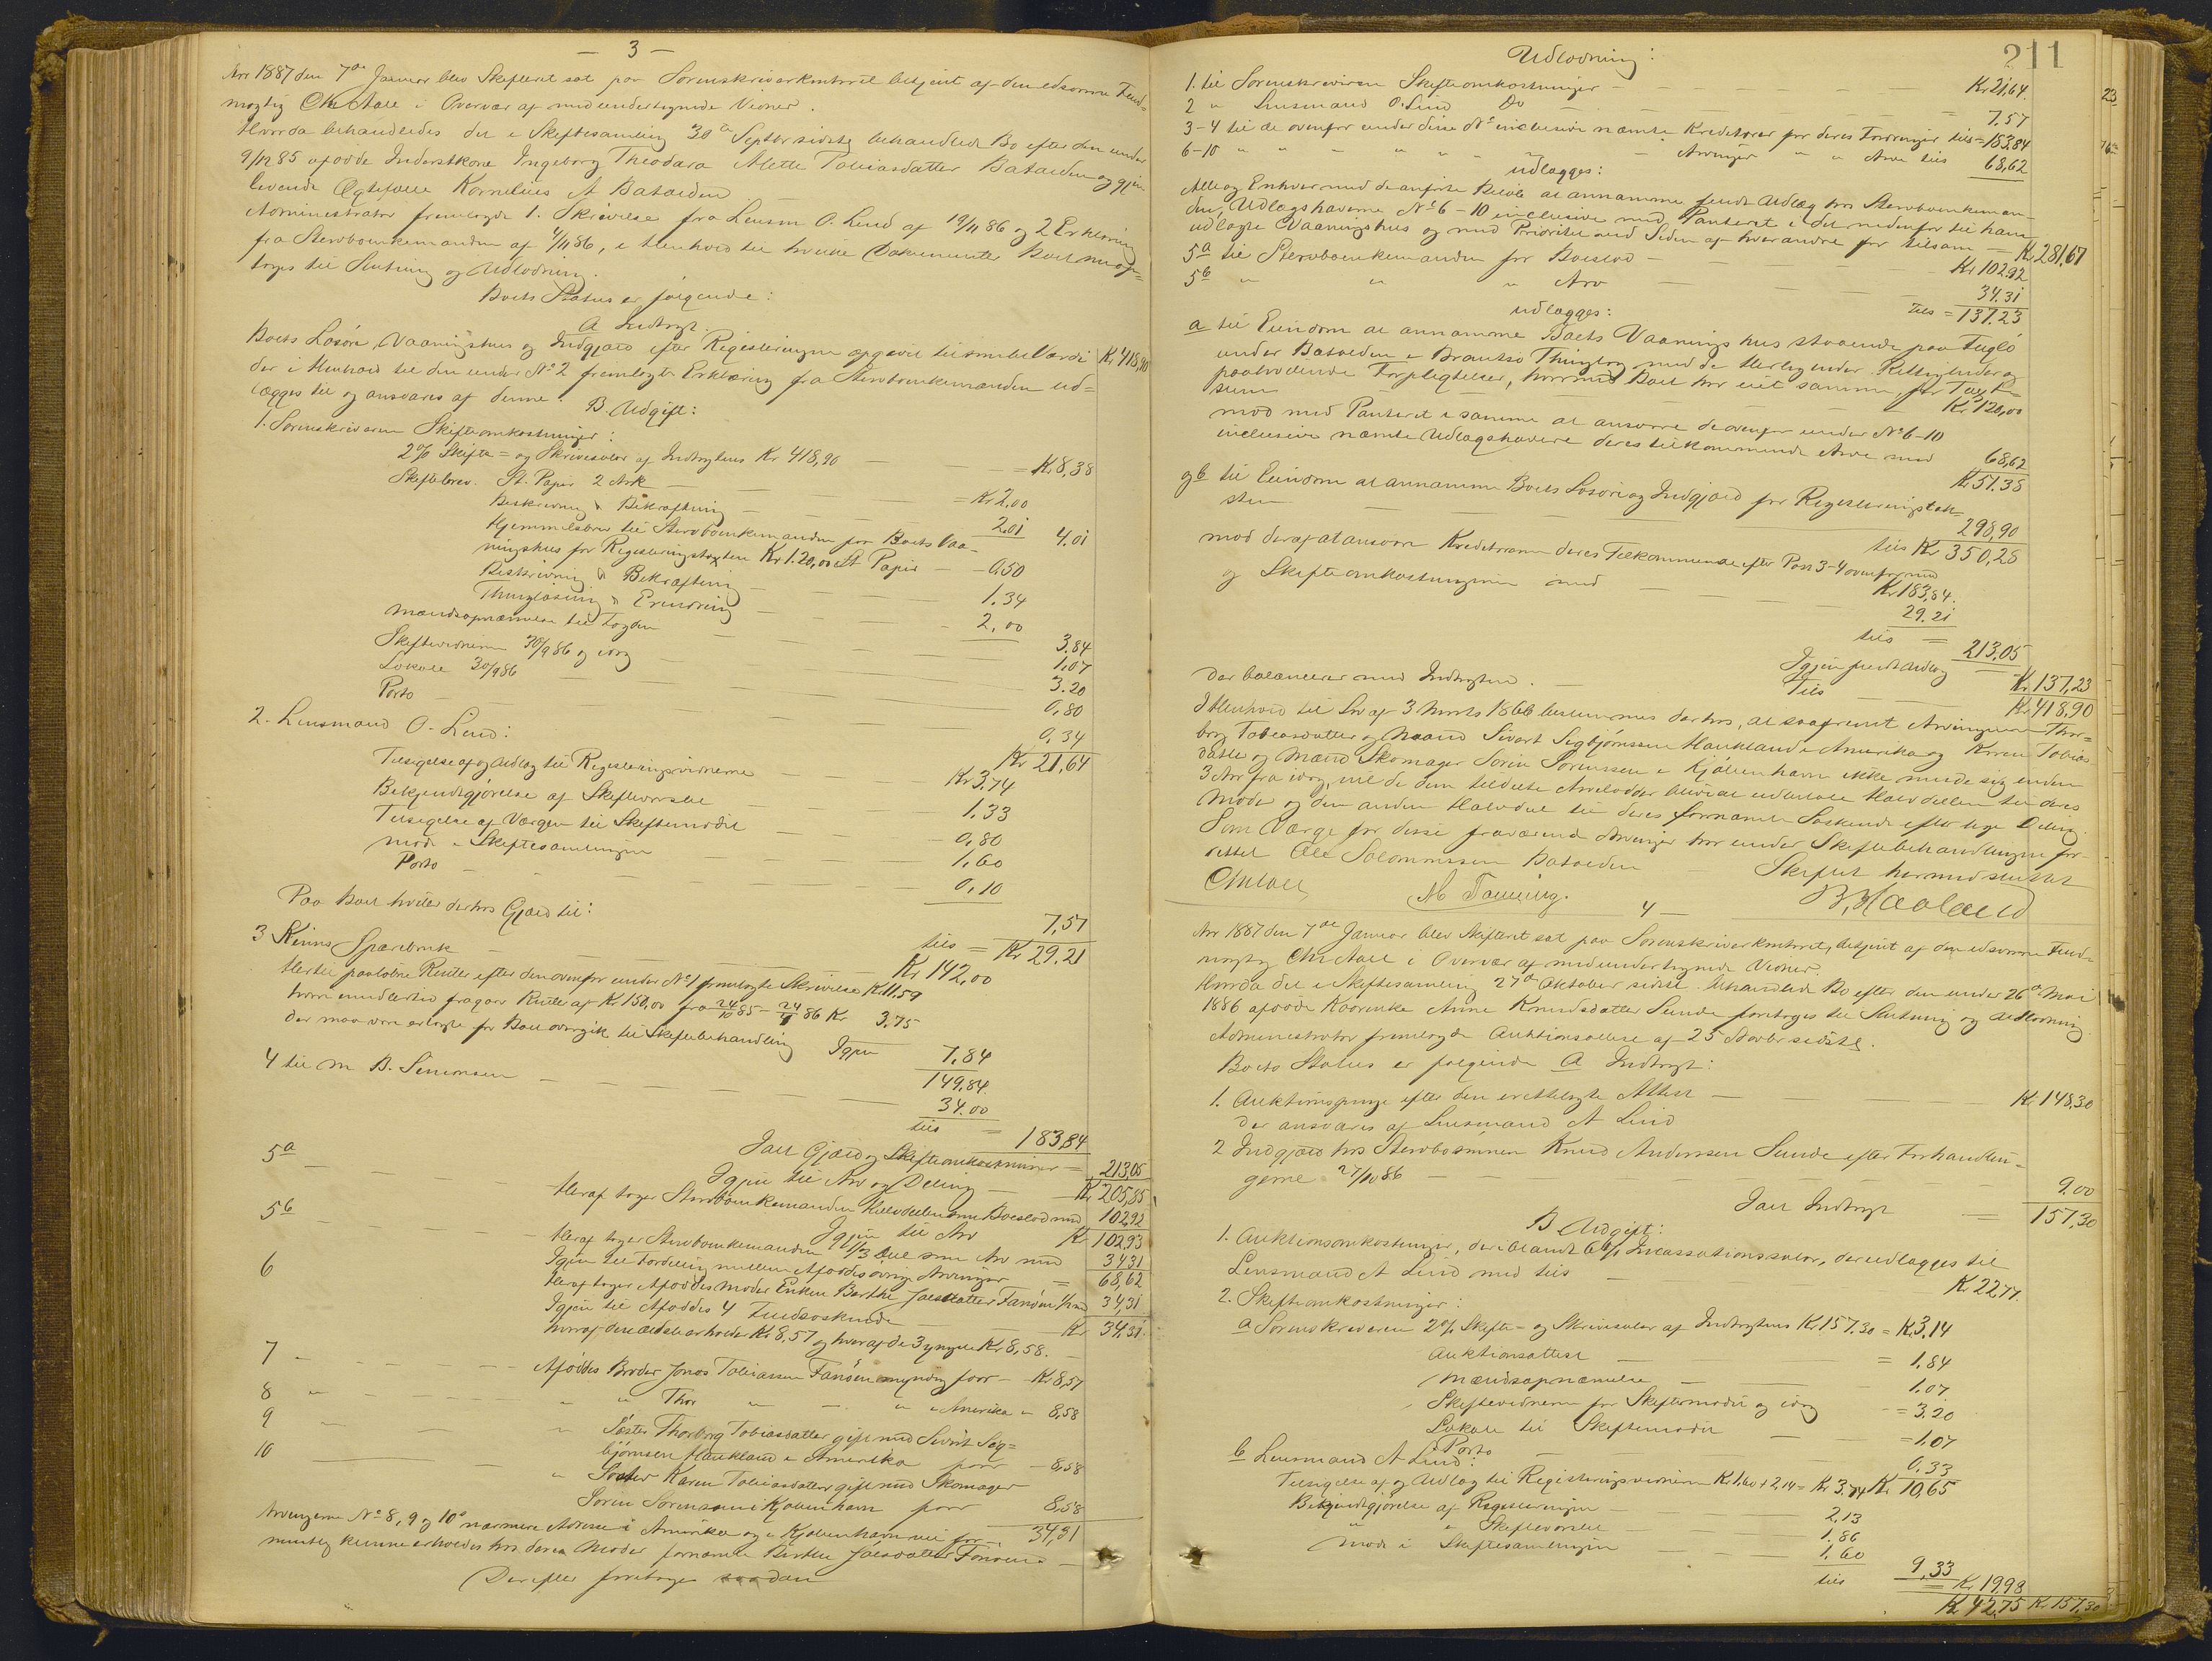 - 3 -
Aar 1887 den 7de Januar blev Skifteret sat paa Sorenskriverkontoret betjent af den edsorne Fuld-
mægtig Chr Aall i Overvær af medundertegnede Vidner.
Hvorda behandledes det i Skiftesamling 30te Septbr sidste behandlede Bo efter den under
9/12 85 afdøde Inderstkone Ingeborg Theodora Alette Tobiasdatter Bataldén og gjen
levende Ægtefælle Kornelius A Bataldén
Administrator fremlagde 1. Skrivelse fra Lensm O. Lund af 19/11 86 og 2 Erklæring
fra Stervboenkemanden af 4/11 86, i Henhold til hvilke Dokumenter Boet
toges til Slutning og Udlodning.
Boets Status er følgende:
A Indtægt.
Boets Løsøre, Vaaningshus og Indgjæld efter Registeringen opgivet tilsmlt Værdi Kr 418,90
der i Henhold til den under No 2 fremlagte Erklæring fra Stervboenkemanden ud=
lægges til og ansvares af denne.
B. Udgift:
1. Sorenskriveren Skifteomkostninger:
2% Skifte= og Skrivesalær af Indtægtens Kr 418,90 — = Kr 8,38
Skiftebrev. St. Papir 2 Ark — = Kr 2,00
Beskrivning & Bekræftning — 2.01 4,01
Hjemmelsbrev til Stervboenkemanden paa Boets Vaa-
ningshus for Registeringstaxten Kr 120,00 St Papir — 0,50
Beskrivning & Bekræftning — 1.34
Thinglæsning & Erindring — 2,00
3.84
Mændsopnævnelse til Fogden — 1,07
Skiftevidnerne 30/9 86 og idag — 3.20
Lokale 30/9 86 — 0,80
Porto — 0,34
Kr 21,64
2. Lensmand O. Lund:
Tilsigelse af og Udlæg til Registeringsvidnerne — Kr 3.74
Bekjendtgjørelse af Skiftevarslet — 1.33
Tilsigelse af Værgen til Skiftemødet — 0,80
Møde i Skiftesamlingen — 1,60
Porto — 0,10
7,57
tils = Kr 29.21
Paa Boet hviler derhos Gjæld til:
3 Kinns Sparebank — Kr 142,00
Hertil paaløbne Renter efter den ovenfor under No 1 fremlagte Skrivelse Kr 11.59
hvori imidlertid fragaar Renter af Kr 150,00 fra 24/10 85 - 24/4 86 Kr 3,75
der maa være erlagte før Boet overgik til Skiftebehandling Igjen 7,84
149,84
4 til M. B. Simonsen — 34.00
tils = 183,84
Ialt Gjæld og Skifteomkostninger = 213,05
Igjen til Arv og Deling — Kr 205,85
5a — Heraf tager Stervboenkemanden Halvdelen som Boeslod med 102,92
Igjen til Arv Kr 102,93
5b — Heraf tager Stervboenkemanden 1/3 Del som Arv med 34,31
Igjen til Fordeling mellem Afdødes øvrige Arvinger = 68,62
6 Heraf tager Afdødes Moder Enken Berthe Joelsdatter Fanøen 1/2 med 34,31
Igjen til Afdødes 4 Fuldsøskende — Kr 34,31
hvoraf den ældste erholder Kr 8,57 og hver af de 3 yngre Kr 8,58.
7 — Afdødes Broder Jonas Tobiassen Fanøen myndig faar — Kr 8,57
8 " — " Thor " — " i Amerika " 8,58
9 — " Søster Thorborg Tobiasdatter gift med Sivert Sig=
bjørnsen Haukland i Amerika faar — 8,58
10 — " Søster Karen Tobiasdatter gift med Skomager
Søren Sørensen i Kjøbenhavn faar 8,58
34,31
Arvingerne No 8, 9 og 10s nærmere Adresse i Amerika og i Kjøbenhavn vil for-
mentlig kunne erholdes hos deres Moder fornævnte Berthe Joelsdatter Fanøen. —
Derefter foretoges saadan
211
Udlodning:
1. til Sorenskriveren Skifteomkostninger — Kr 21,64.
2 " Lensmand O. Lund Do — = 7.57
3-4 til de ovenfor under disse No inclusive nævnte Kreditorer for deres Fordringer tils = 183,84
6-10 " " " " " " Arvinger " " Arv tils 68,62
udlægges:
Alle og Enhver med de anførte Beløb at annamme fuldt Udlæg hos Stervboenkeman-
den, Udlægshaverne No 6-10 inclusive med Panteret i det nedenfor til ham
udlagte Vaaningshus og med Prioritet ved Siden af hverandre for tilsam — Kr 281,67
5a til Stervboenkemanden for Boeslod — Kr 102.92
5b " " " Arv — 34.31
Tils = 137.23
udlægges:
a til Eiendom at annamme Boets Vaanings hus staaende paa Fuglø
under Bataldén i Brandsø Thinglag med de Herlighender Rettigheder og
paahvilende Forpligtelser, hvormed Boet har eiet samme, for Taxt-
sum — Kr 120,00
mod med Panteret i samme at ansvare de ovenfor under No 6-10
inclusive nævnte Udlægshavere deres tilkommende Arv med 68,62
Kr 51.38
og b til Eiendom at annamme Boets Løsøre og Indgjæld for Registeringstax-
sten — 298,90
tils Kr 350,28
mod deraf at ansvare Kreditorerne deres Tilkommende efter Post 3-4 ovenfor med
Kr 183,84.
og Skifteomkostningerne med — 29.21
tils = 213,05
Igjen fuldt Udlæg — Kr. 137,23
Tils — Kr 418,90
der balancerer med Indtægten. —
I Henhold til Lov af 3 Marts 1866 bestemmes derhos, at saafremt Arvingerne Thor-
borg Tobiasdatter og Mand Sivert Sigbjørnsen Haukland i Amerika og Karen Tobias
datter og Mand Skomager Søren Sørensen i Kjøbenhavn ikke melde sig inden
3 Aar fra idag, vil de dem tildelte Arvelodder blive at udbetale Halvdelen til deres
Moder og den anden Halvdel til deres fornævnte Søskende efter lige Deling.
Som Værge for disse fraværende Arvinger har under Skiftebehandlingen for-
rettet Ole Salomonsen Bataldén Skiftet hermed sluttet
Chr Aall
4 —
Aar 1887 den 7de Januar blev Skifteret sat paa Sorenskriverkontoret, betjent af den edsorne Fuld-
mægtig Chr Aall i Overvær af medundertegnede Vidner.
Hvorda det i Skiftesamling 27de Oktober sidst behandlede Bo efter den under 26de Mai
1886 afdøde Kaarenke Anne Knudsdatter Sunde foretoges til Slutning og Udlodning
Administrator fremlagde Auktionsattest af 25 Novbr sidstl.
Boets Status er følgende A Indtægt:
1. Auktionspenge efter den ertetlagte Attest — Kr 148,30
der ansvares af Lensmand A Lind
2 Indgjæld hos Stervbosønnen Knud Andersen Sunde efter Forhandlin-
gerne 27/10 86 — 9.00
Ialt Indtægt = 157,30
B Udgift:
1. Auktionsomkostninger, deriblandt 6% Incassationssalær, der udlægges til
Lensmand A Lind med tils — Kr 22,77.
2. Skifteomkostninger:
a Sorenskriveren 2% Skifte= og Skrivesalær af Indtægtens Kr 157.30 = Kr 3,14
Auktionsattest — = 1,84
Mændsopnævnelse — 1.07
Skiftevidnerne for Skiftemødet og idag — = 3.20
Lokale til Skiftemødet — = 1,07
Porto — 0,33
Kr 10,65
b Lensmand A Lind:
Tilsigelse af og Udlæg til Registeringsvidnerne Kr 1.60 + 2.14 = Kr 3,74
Bekjendtgjørelse af Registeringen — 2,13
" " Skiftevarslet — 1.86
Møde i Skiftesamlingen — 1.60
tils 9,33
= Kr 19,98
Kr 42,75 Kr 157,30